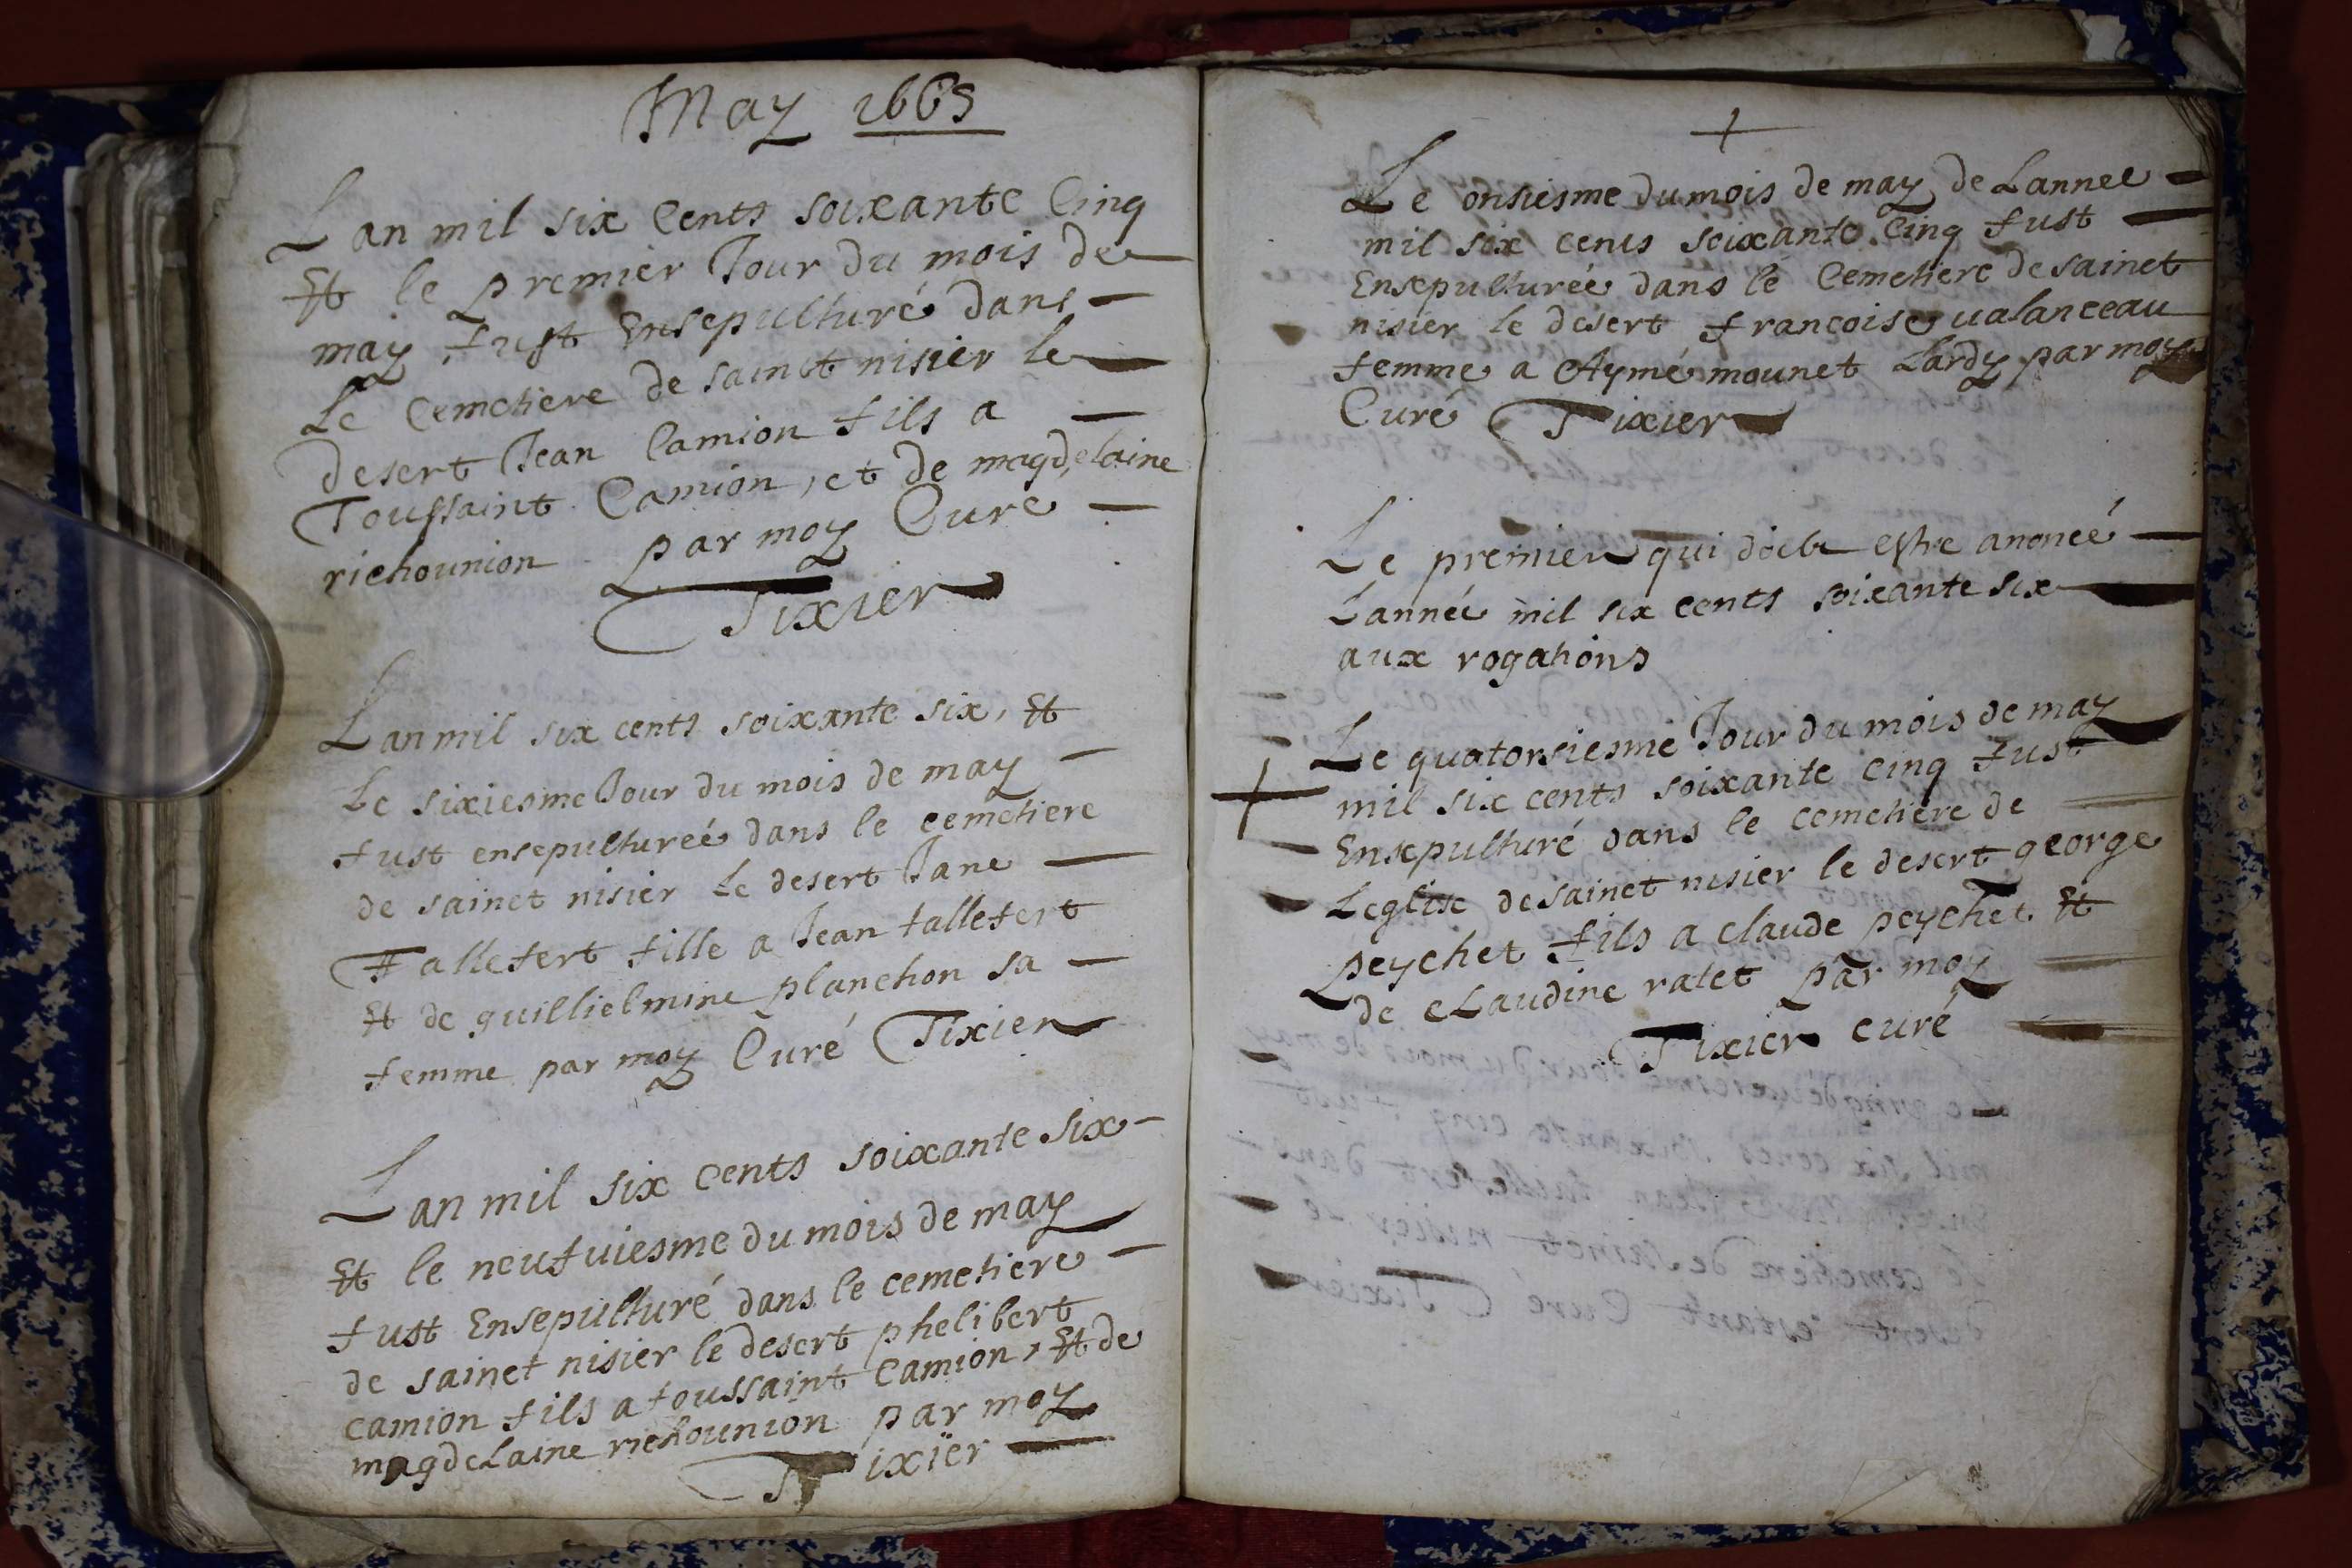 May 1665
Lan mil six cents soixante cinq
Et le premier Jour du mois de
may fust Ensepulturé dans
Le Cemetiere de sainct nisier le
desert Jean Camion fils a
Toussaint Camion, et de magdelaine
richounion par moy Curé
Tixier
Lan mil six cents soixante six, Et
Le sixiesme Jour du mois de may
fust ensepulturée dans le cemetiere
de sainct nisier Le desert Jane
Tallefert fille a Jean tallefert
Et de guillielmine planchon sa
femme par moy Curé Tixier
Lan mil six cents soixante six
Et le neufuiesme du mois de may
fust Ensepulturé dans le cemetiere
de sainct nisier le desert phelibert
camion fils a toussaint Camion, Et de
magdelaine richounion par moy
Tixier
Le onsiesme du mois de may de Lannee
mil six cents soixante cinq fust
Ensepulturée dans le Cemetiere de sainct
nisier le desert francoise ualanceau
femme a Aymé mounet Lardy par moy
Curé Tixier
Le premier qui doibt estre anoncé
Lannée mil six cents soixante six
aux rogations
Le quatorsiesme Jour du mois de may
mil six cents soixante cinq fust
Ensepulturé dans le cemetiere de
Leglise de sainct nisier le desert george
peychet fils a claude peychet Et
de cLaudine ratet par moy
Tixier curé